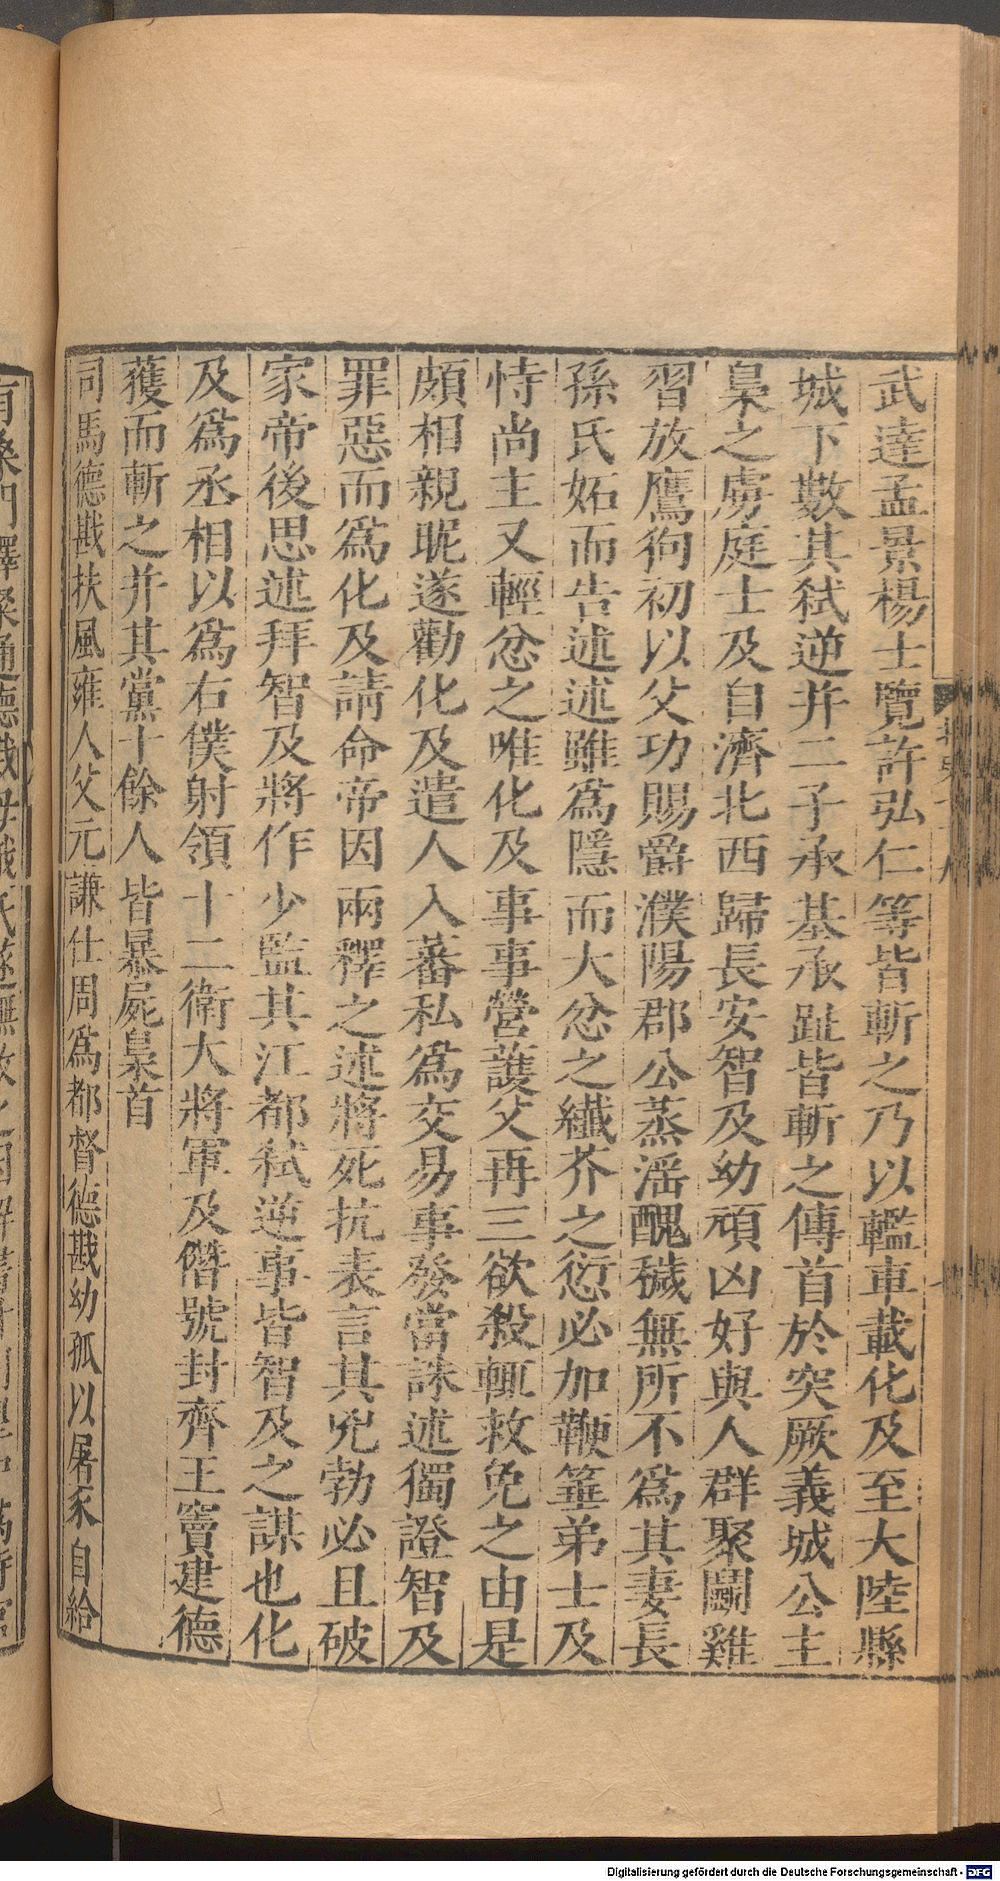 武達孟景楊士覽許弘仁等皆斬之乃以轞車載化及至大陸縣
城下數其弑逆并二子承基承趾皆斬之傳首於突厥義城公主
梟之虜庭士及自濟北西歸長安智及幼頑凶好與人群聚鬭雞
習放鷹狗初以父功賜爵濮陽郡公蒸淫醜穢無所不爲其妻長
孫氏妬而告述述雖爲隱而大忿之纎芥之愆必加鞭箠弟士及
恃尚主又輕忿之唯化及事事營護父再三欲殺輒救免之由是
頗相親昵遂勸化及遣人入蕃私爲交易事發當誅述獨證智及
罪惡而爲化及請命帝因兩釋之述將死抗表言其兇勃必且破
家帝後思述拜智及將作少監其江都弑逆事皆智及之謀也化
及爲丞相以爲右僕射領十二衛大將軍及僭號封齊王竇建德
獲而斬之并其黨十餘人皆暴屍梟首
司馬德戡扶風雍人父元謙仕周爲都督德戡幼孤以屠豕自給
Digitalisierung gefördert durch die Deutsche Forschungsgemeinschaft - DFG